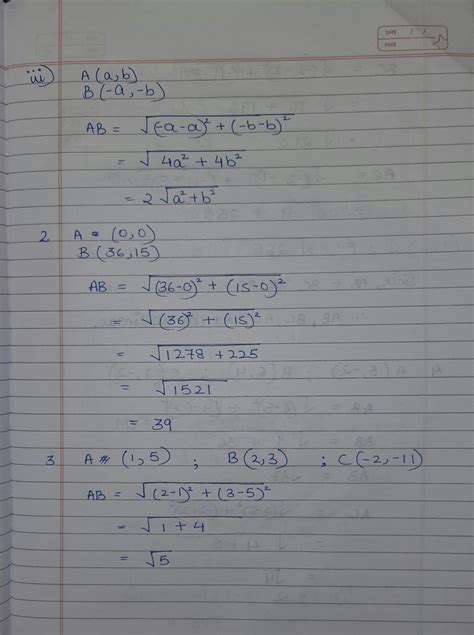 DATE / /
PAGE
iii) A(a,b)
B(-a,-b)
AB = √(-a-a)² + (-b-b)²
= √4a² + 4b²
= 2√a² + b²
2 A = (0,0)
B(36,15)
AB = √(36-0)² + (15-0)²
= √(36)² + (15)²
= √1278 + 225
= √1521
= 39
3 A = (1,5) ; B(2,3) ; C(-2,-11)
AB = √(2-1)² + (3-5)²
= √1 + 4
= √5